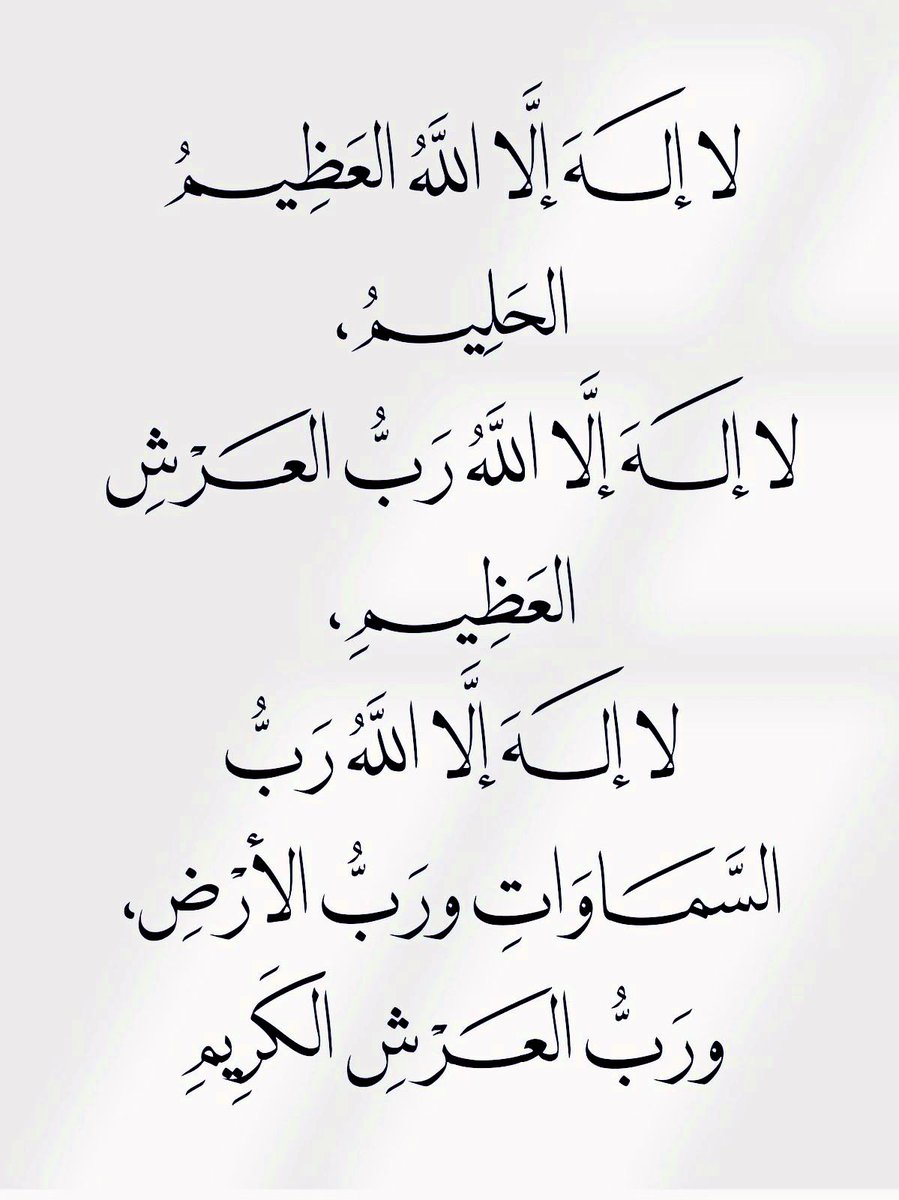 لا إلـهَ إلَّا اللَّهُ العَظِيمُ
الحَلِيمُ،
لا إلـهَ إلَّا اللَّهُ رَبُّ العَرْشِ
العَظِيمِ،
لا إلـهَ إلَّا اللَّهُ رَبُّ
السَّمَاوَاتِ ورَبُّ الأرْضِ،
ورَبُّ العَرْشِ الكَرِيمِ